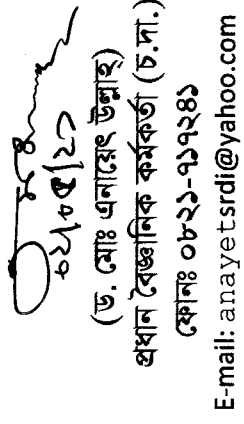 (ড. মোঃ এনায়েৎ উল্লাহ)
প্রধান বৈজ্ঞানিক কর্মকর্তা (চ.দা.)
ফোনঃ ০৮২১-৭১৭২৪১
E-mail: anayetsrdi@yahoo.com